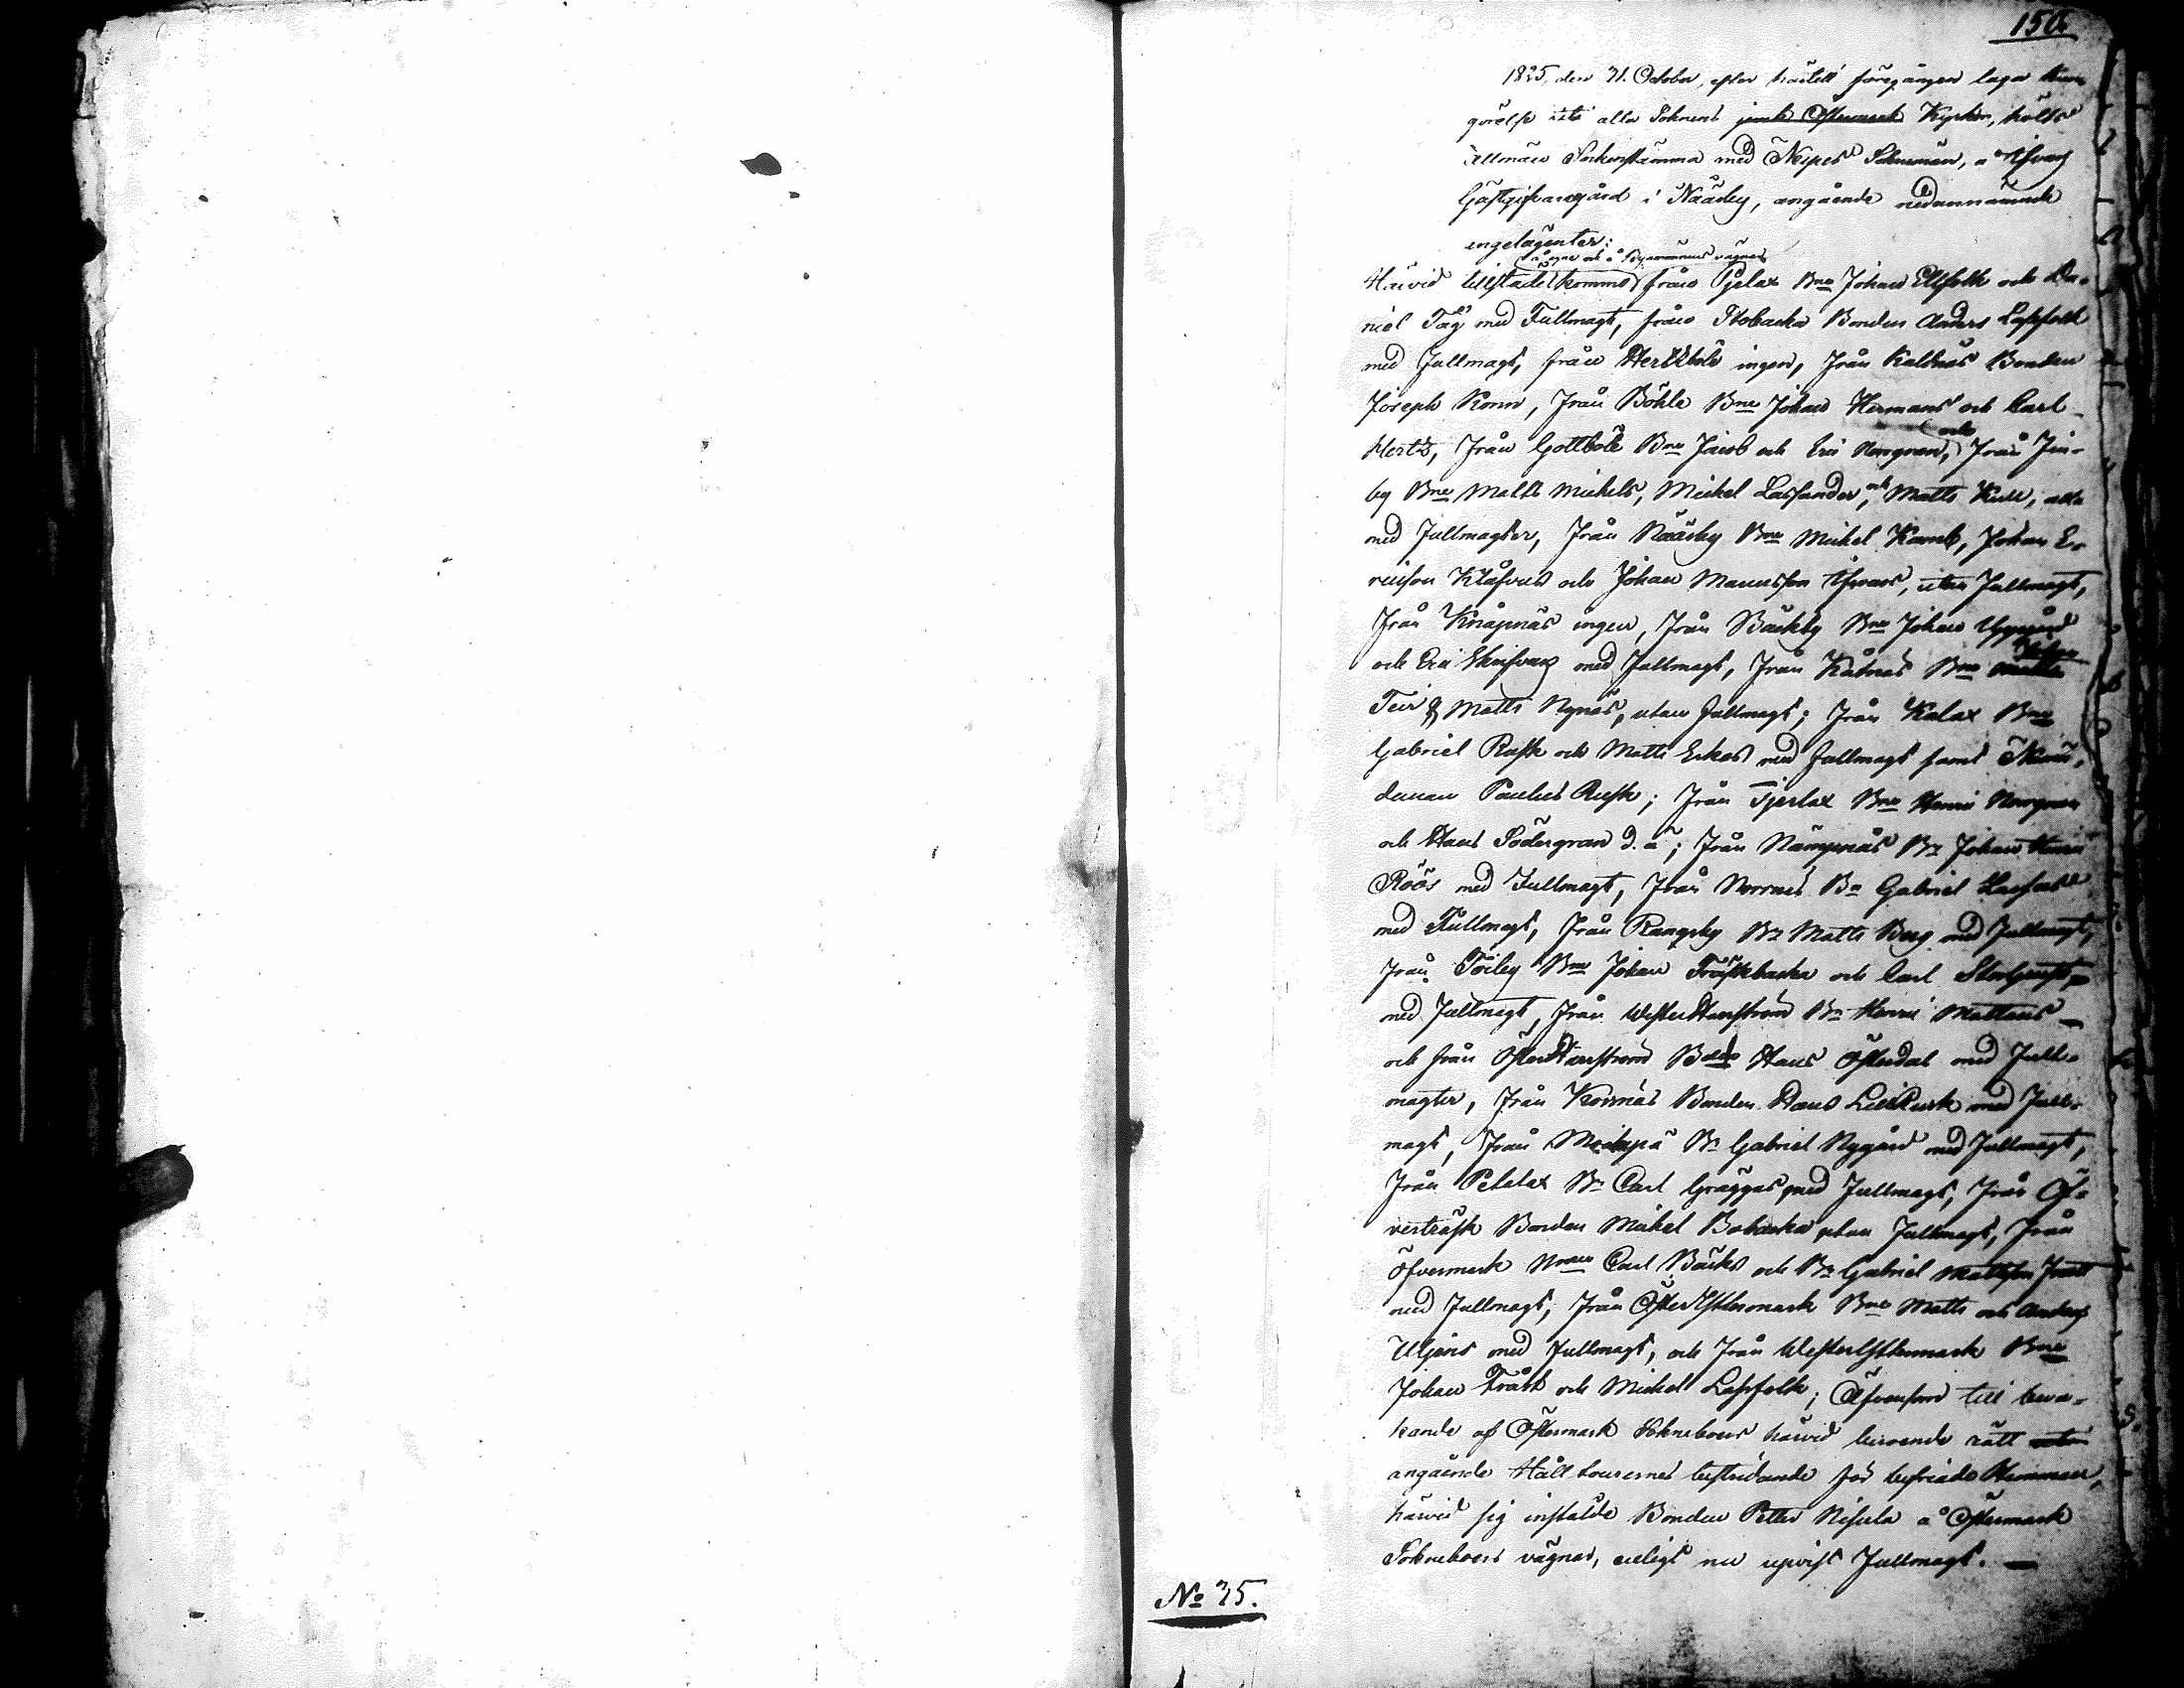 150.
1825, den 31. October, efter härtill föregången laga kun-
görelse uti alla Soknens jemte Östermark Kyrkor, hölts
Allmän Sockenstämma med Närpes Soknemän, å Åfvars
Gästgifvaregård i Nääsby, angående nedannämnde
angelägenter:
å egne och å Byamännens vägnar
Härvid tillstädes kommo från Pjelax Bne Johan Ellfolk och Da-
niel Tåg med Fullmagt, från Stobacka Bonden Anders Lassfolk
med Fullmagt, från Hertsböle ingen, från Kaldnäs Bonden
Joseph Konn, från Böhle Bne Johan Hermans och Carl
Herts, från Gottböle Bne Jacob och Eric Norrgran, och från Fin-
by Bne Matts Michels, Mickel Lassander, och Matts Kull, alla
med Fullmagter, från Nääsby Bne Mickel Kamb, Johan E-
ricsson Klåfvus och Johan Mannsson Åfvars, utan Fullmagt,
från Knåpnäs ingen, från Bäckby Bne Johan Uppgård
och Eric Skrifvars med Fullmagt, från Kåtnäs Bne
Teir & Matts Nynäs, utan Fullmagt; från Kalax Bne
Gabriel Rusk och Matts Erkas med Fullmagt samt Nämn-
deman Paulus Rusk; från Tjerlax Bne Henric Norrgran
och Hans Södergran d. ä; från Nämpnäs Bn Johan Henric
Röös med Fullmagt, från Norrnäs Bn Gabriel
med Fullmagt, från Rangsby Bn Matts Berg med Fullmagt,
från Töjby Bne Johan Träskbacka och Carl
med Fullmagt, från WesterHarrström Bn Henric Mattans
och från ÖsterHarrström Bden Hans Österdal med Full-
magter, från Korsnäs Bonden Hans LillRusk med Full-
magt, från Moikipä Bn Gabriel Nygård med Fullmagt,
från Petalax Bn Carl Gräggas med Fullmagt, från Öf-
verträsk Bonden Mickel Bobacka utan Fullmagt, från
Öfvermark Carl Bäcks och Bn Gabriel Mattsson
med Fullmagt; från ÖsterYttermark Bne Matts och Anders
Uljens med Fullmagt, och från WesterYttermark Bne
Johan Träsk och Mickel Lassfolk; Äfvensom till beva-
kande af Östermark Sokneboers härvid beroende rätt
angående Hålltourernes bestridande för befriade Hemman,
härvid sig instälde Bonden Petter Nisula å Östermark
Sokneboers vägnar, enligt nu upvist Fullmagt.
No 35.